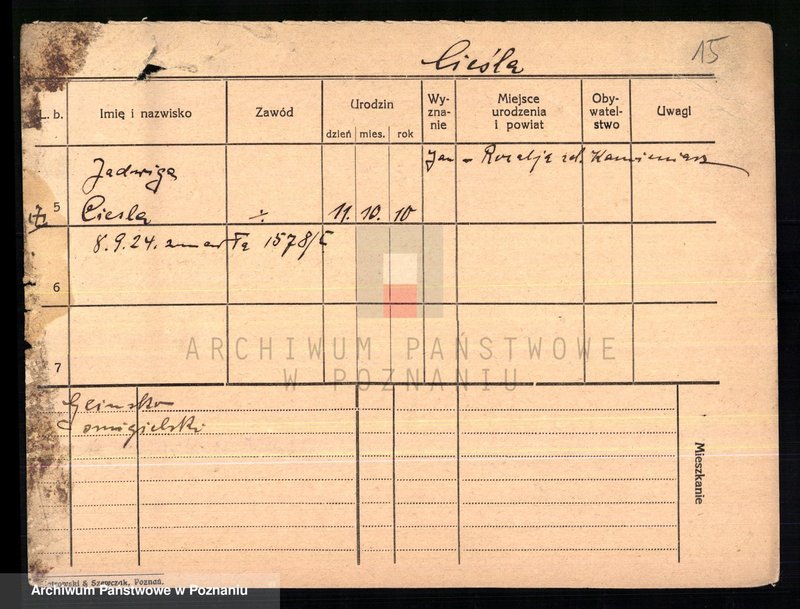 15
Cieśla
L. b.
Imię i nazwisko
Zawód
Urodzin
dzień mies. rok
Wy-
zna-
nie
Miejsce
urodzenia
i powiat
Oby-
watel-
stwo
Uwagi
Jan - Rozalja Kamieniarz
Jadwiga
5 Cieśla ÷ 11. 10. 10
8.9.24. zmarła 1578/
6
7
ARCHIWUM PAŃSTWOWE
W POZNANIU
Glinsko
Mieszkanie
& Szewczak, Poznań.
Archiwum Państwowe w Poznaniu